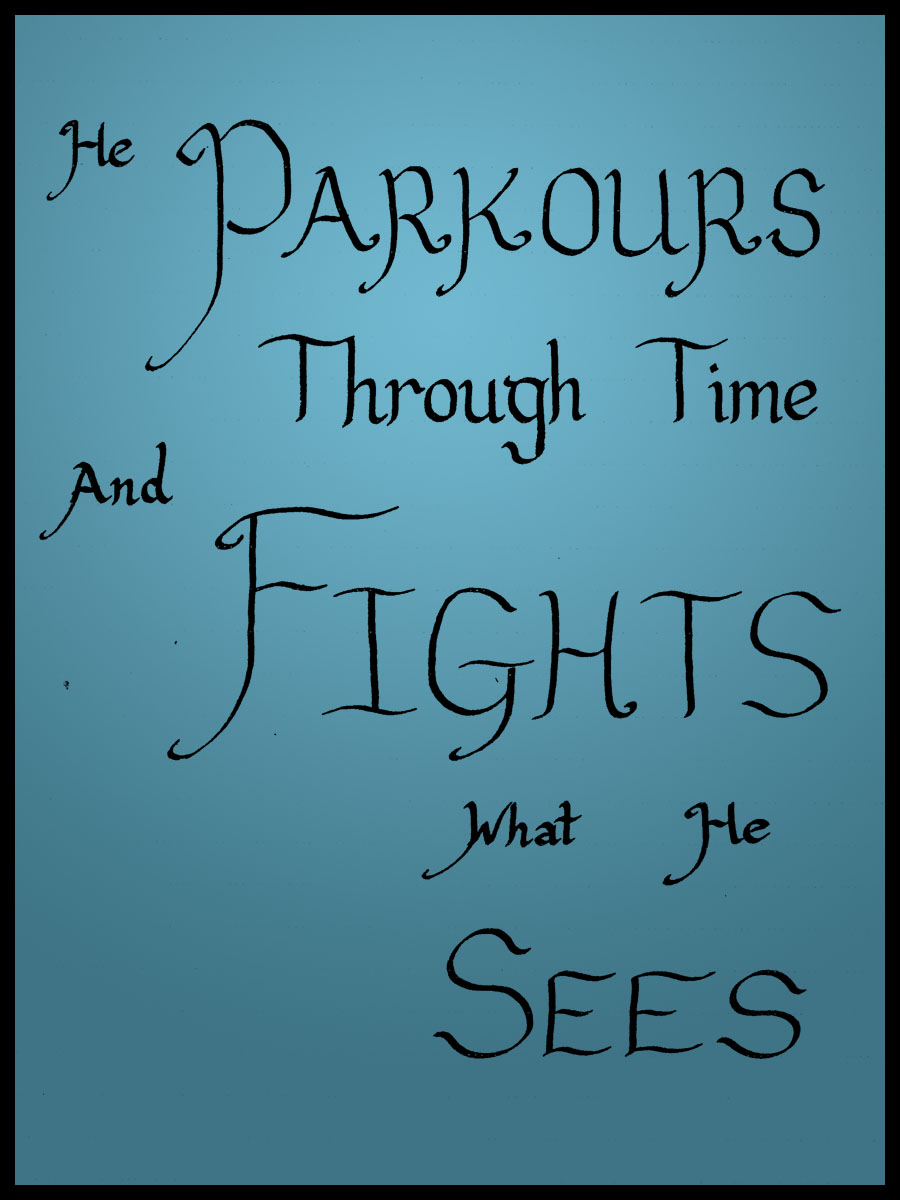 He PARKOURS
Through Time
And
FIGHTS
What He
SEES